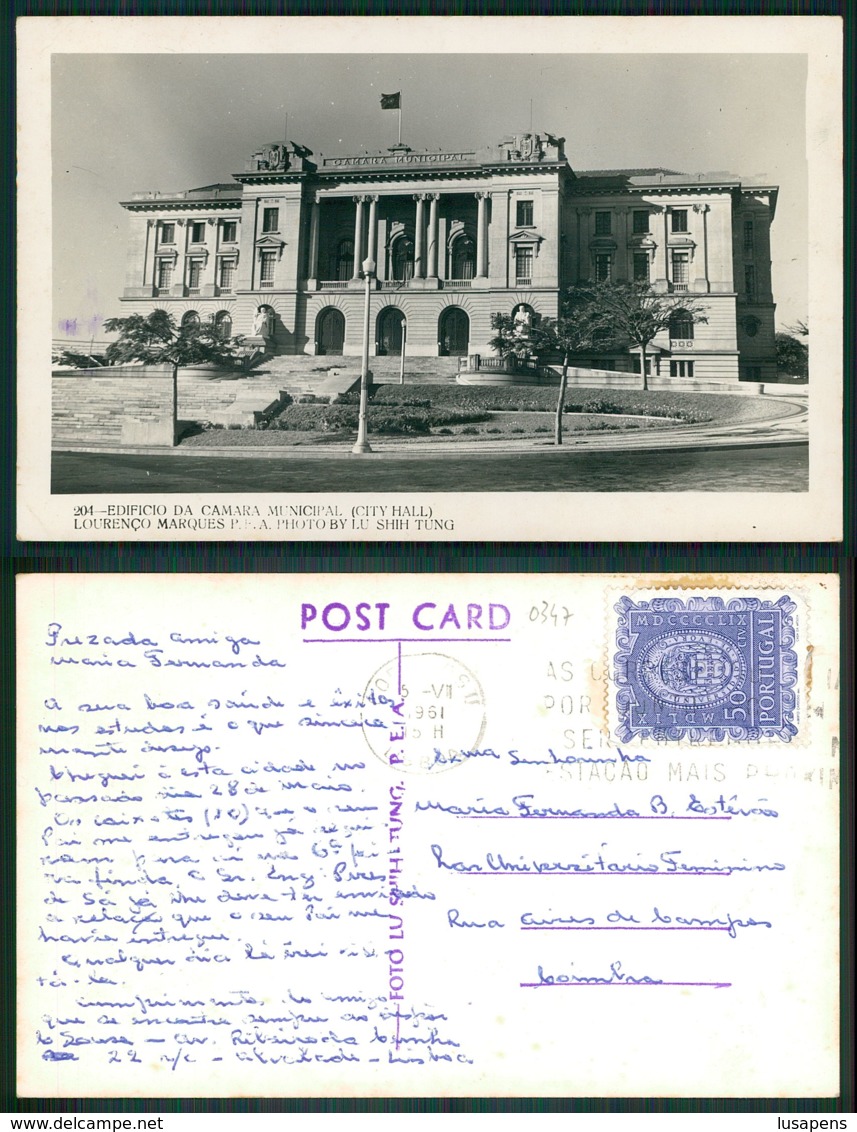 CAMARA MUNICIPAL
204—EDIFICIO DA CAMARA MUNICIPAL (CITY HALL)
LOURENÇO MARQUES P.E.A. PHOTO BY LU SHIH TUNG
POST CARD
0347
Prezada amiga
Maria Fernanda
A sua boa saúde e êxitos
nos estudos é o que sincera
mente desejo.
Cheguei a esta cidade no
passado dia 28 de Maio.
Os caixotes (10) que o seu
Pai me entregou já segui
ram para aí na 6ª fei
ra finda. O Sr. Engº Pires
de Sá já lhe deve ter enviado
a relação que o seu Pai me
havia entregue.
Qualquer dia lá irei visi
tá-la.
Cumprimentos do amigo
que se encontra sempre ao dispor
Sousa — Av. Ribeiro da
22 r/c - Alvalade - Lisboa
FOTO LU SHIH TUNG. P. E. A.
1961
MDCCCCLIX
PORTUGAL
1$50
AS
POR
SER
ESTAÇÃO MAIS PROXIM
Exma Senhorinha
Maria Fernanda B. Estêvão
Lar Universitário Feminino
Rua Aires de Campos
Coimbra
lusapens